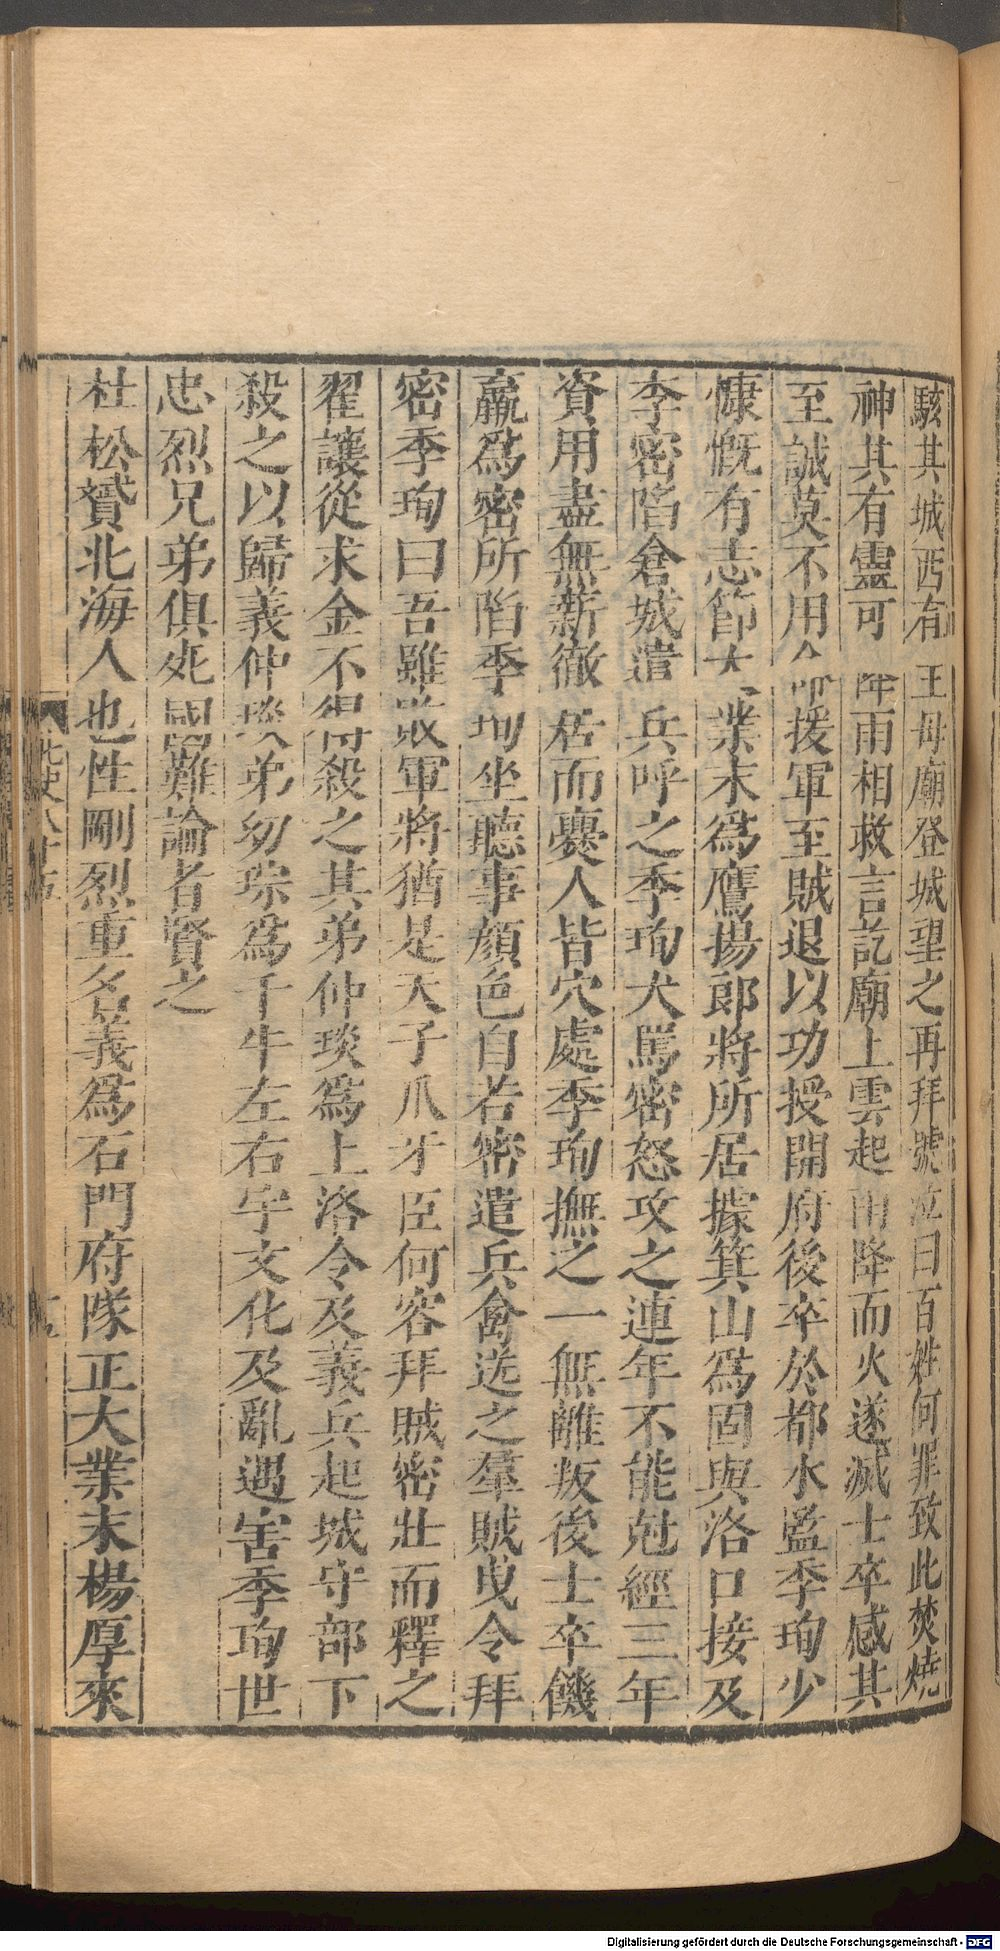 駭其城西有王母廟登城望之再拜號泣曰百姓何罪致此焚燒
神其有靈可降雨相救言訖廟上雲起雨降而火遂滅士卒感其
至誠莫不用命援軍至賊退以功授開府後卒於都水監季珣少
慷慨有志節大業末爲鷹揚郎將所居據箕山爲固與洛口接及
李密陷倉城遣兵呼之季珣大罵密怒攻之連年不能尅經三年
資用盡無薪徹居而㸑人皆穴處季珣撫之一無離叛後士卒饑
羸爲密所陷季珣坐聽事顏色自若密遣兵禽送之羣賊曳令拜
密季珣曰吾雖敗軍將猶是天子爪牙臣何容拜賊密壯而釋之
翟讓從求金不得殺之其弟仲琰爲上洛令及義兵起城守部下
殺之以歸義仲琰弟幼琮爲千牛左右宇文化及亂遇害季珣世
忠烈兄弟俱死國難論者賢之
杜松贇北海人也性剛烈重名義爲石門府隊正大業末楊厚來
Digitalisierung gefördert durch die Deutsche Forschungsgemeinschaft - DFG